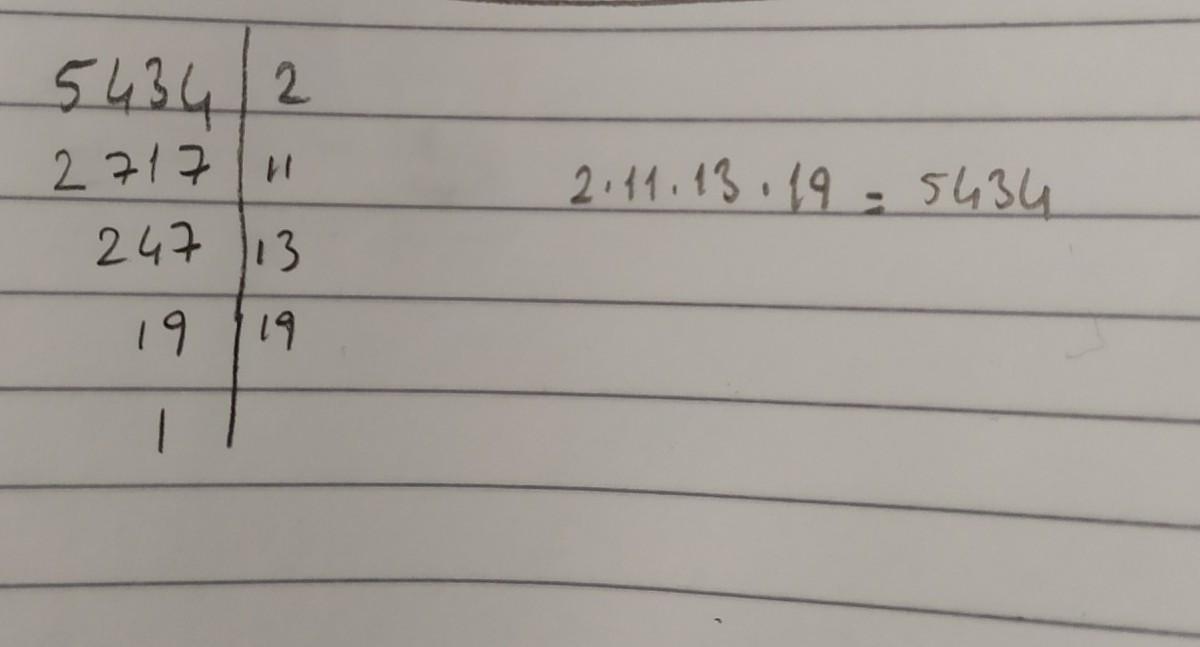 5434 | 2
2717 | 11
247 | 13
19 | 19
1 |
2·11·13·19 = 5434